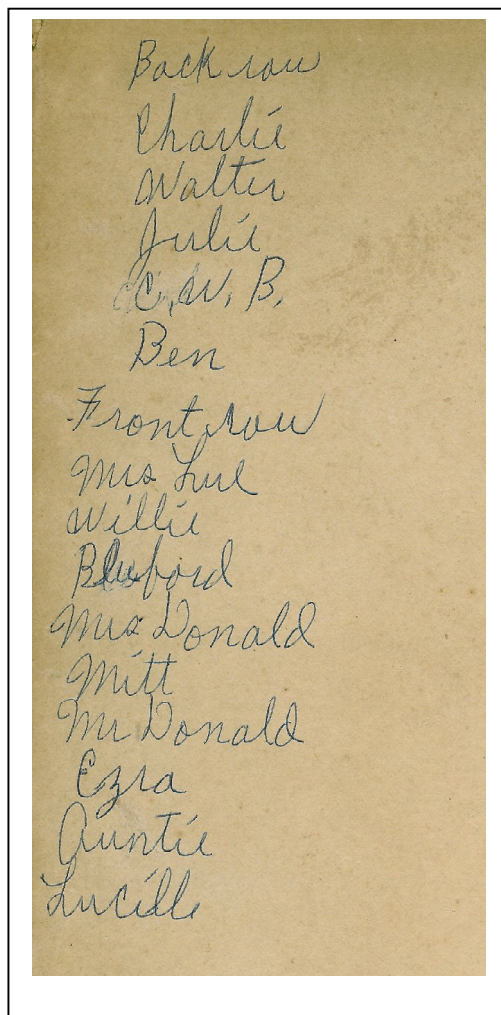 Back row
Charlie
Walter
Julie
C. W. B.
Ben
Front row
Mrs
Willie
Bluford
Mrs Donald
Mitt
Mr Donald
Ezra
Auntie
Lucille